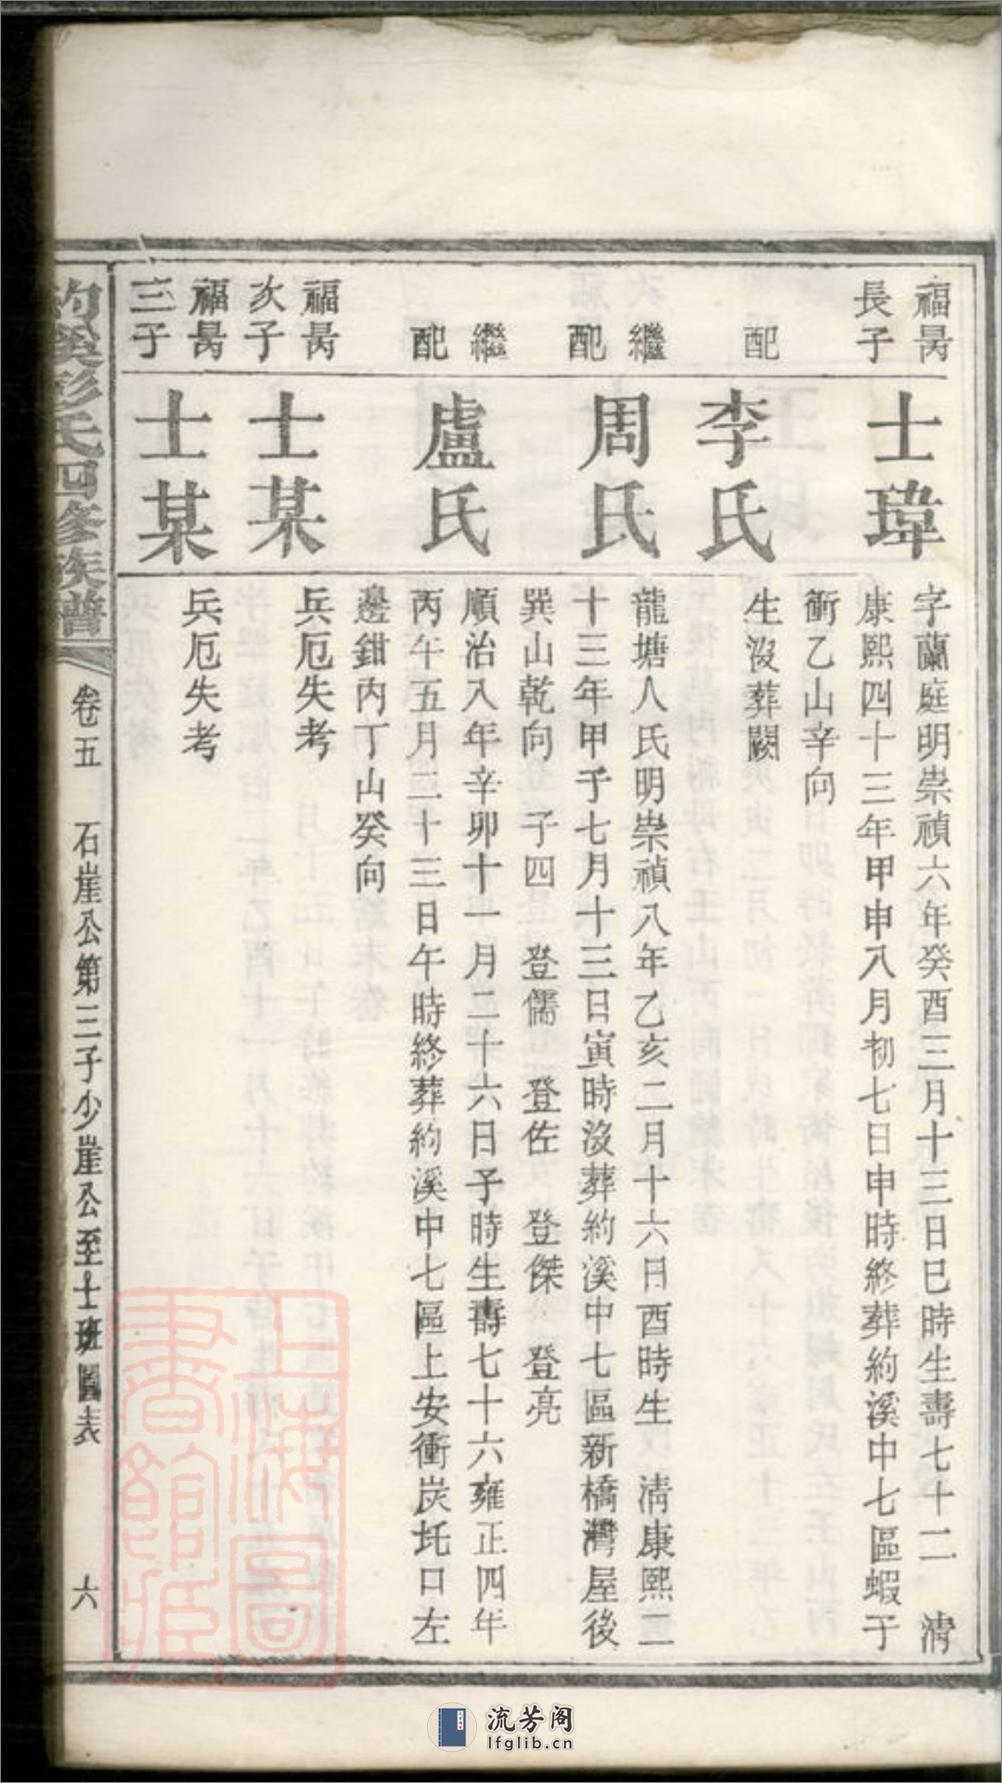 福昺
長子
士瑋
字蘭庭明崇禎六年癸酉三月十三日巳時生壽七十二　清
康熙四十三年甲申八月初七日申時終葬約溪中七區蝦子
衝乙山辛向
配
李氏
生沒葬闕
繼
配
周氏
龍塘人氏明崇禎八年乙亥二月十六日酉時生　清康熙二
十三年甲子七月十三日寅時沒葬約溪中七區新橋灣屋後
巽山乾向　子四　登儒　登佐　登傑　登亮
繼
配
盧氏
順治八年辛卯十一月二十六日子時生壽七十六雍正四年
丙午五月二十三日午時終葬約溪中七區上安衝炭圫口左
邊鉗內丁山癸向
福昺
次子
士某
兵厄失考
福昺
三子
士某
兵厄失考
約溪彭氏四修族譜
卷五　石崖公第三子少崖公至士班圖表　六
上海圖書館藏
流芳阁
lfglib.cn